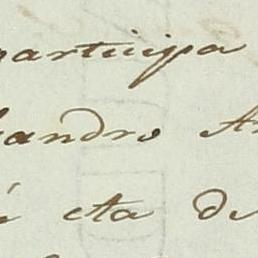 participa
andro A
á eta de